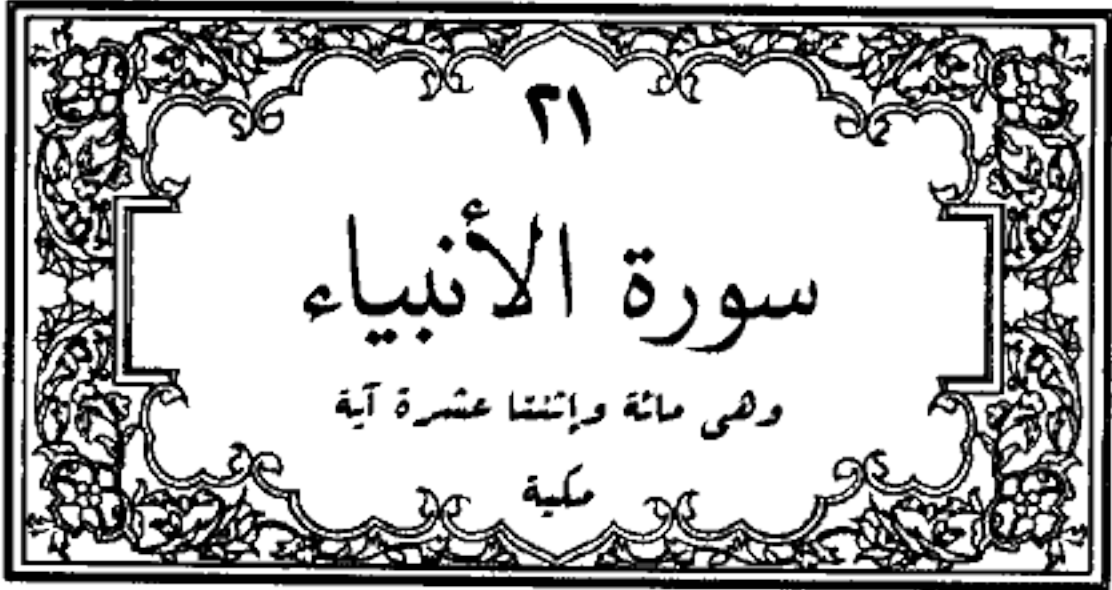 ٢١
سورة الأنبياء
وهى مائة وإثنتا عشرة آية
مكية